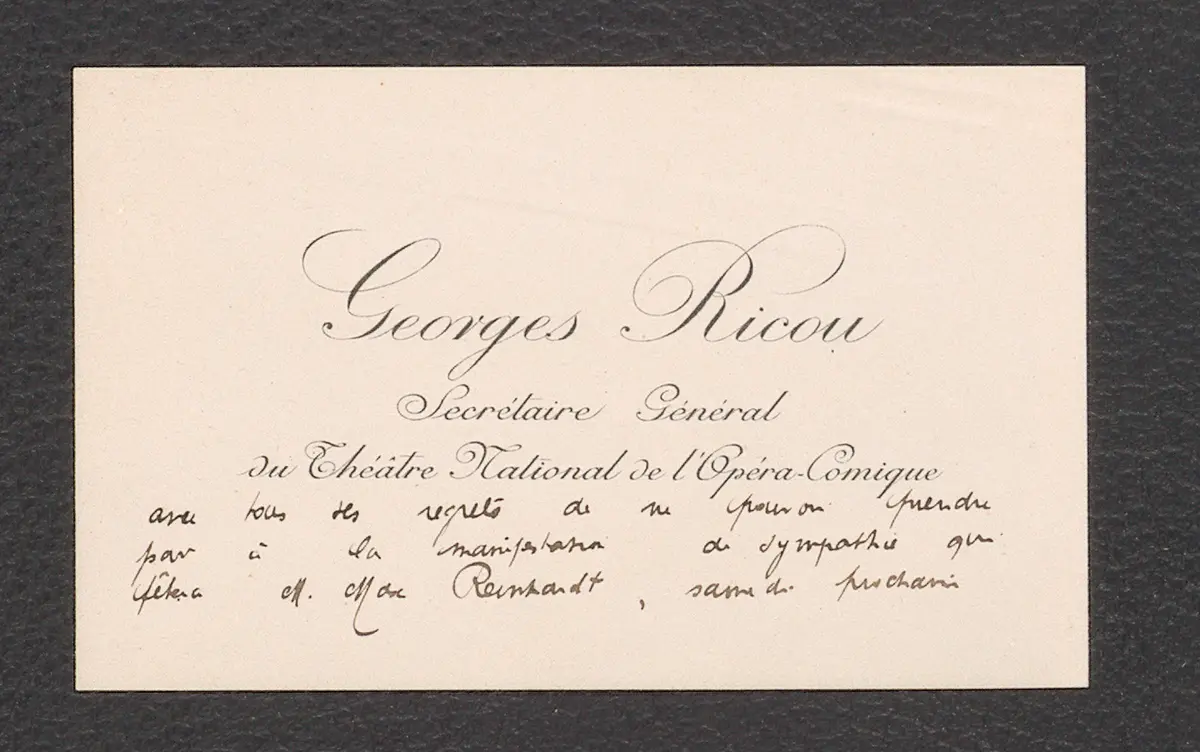 Georges Ricou
Secrétaire Général
du Théâtre National de l'Opéra-Comique
avec tous ses regrets de ne pouvoir prendre
par à la manifestation de sympathie qui
fêtera M. Max Reinhardt, samedi prochain